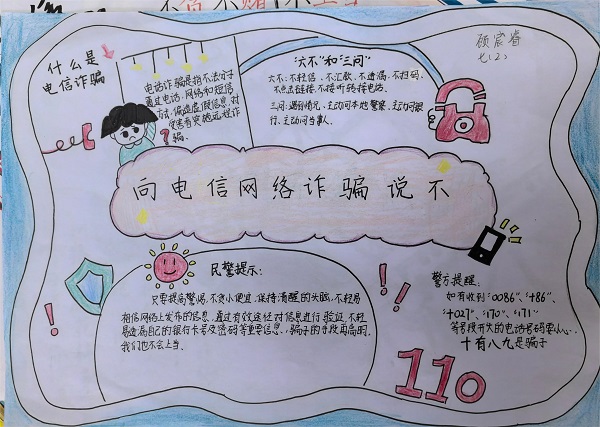 什么是
电信诈骗
电话诈骗是指不法分子
通过电话、网络和短信
方法,编造虚假信息,对
受害者实施远程诈
骗。
"六不"和"三问"
六不:不轻信、不汇款、不透漏、不扫码、
不点击链接、不接听转接电话。
三问:遇到情况,主动问本地警察、主动问银
行、主动问当事人。
顾宸睿
七(2)
向电信网络诈骗说不
民警提示:
只要提高警惕,不贪小便宜,保持清醒的头脑,不轻易
相信网络上发布的信息,通过有效途径对信息进行验证,不轻
易透漏自己的银行卡号及密码等重要信息,骗子的手段再高明,
我们也不会上当。
警方提醒:
如有收到"0086"、"+86"、
"+027"、"170"、"171"
等号段开头的电话号码要小心
十有八九是骗子
110